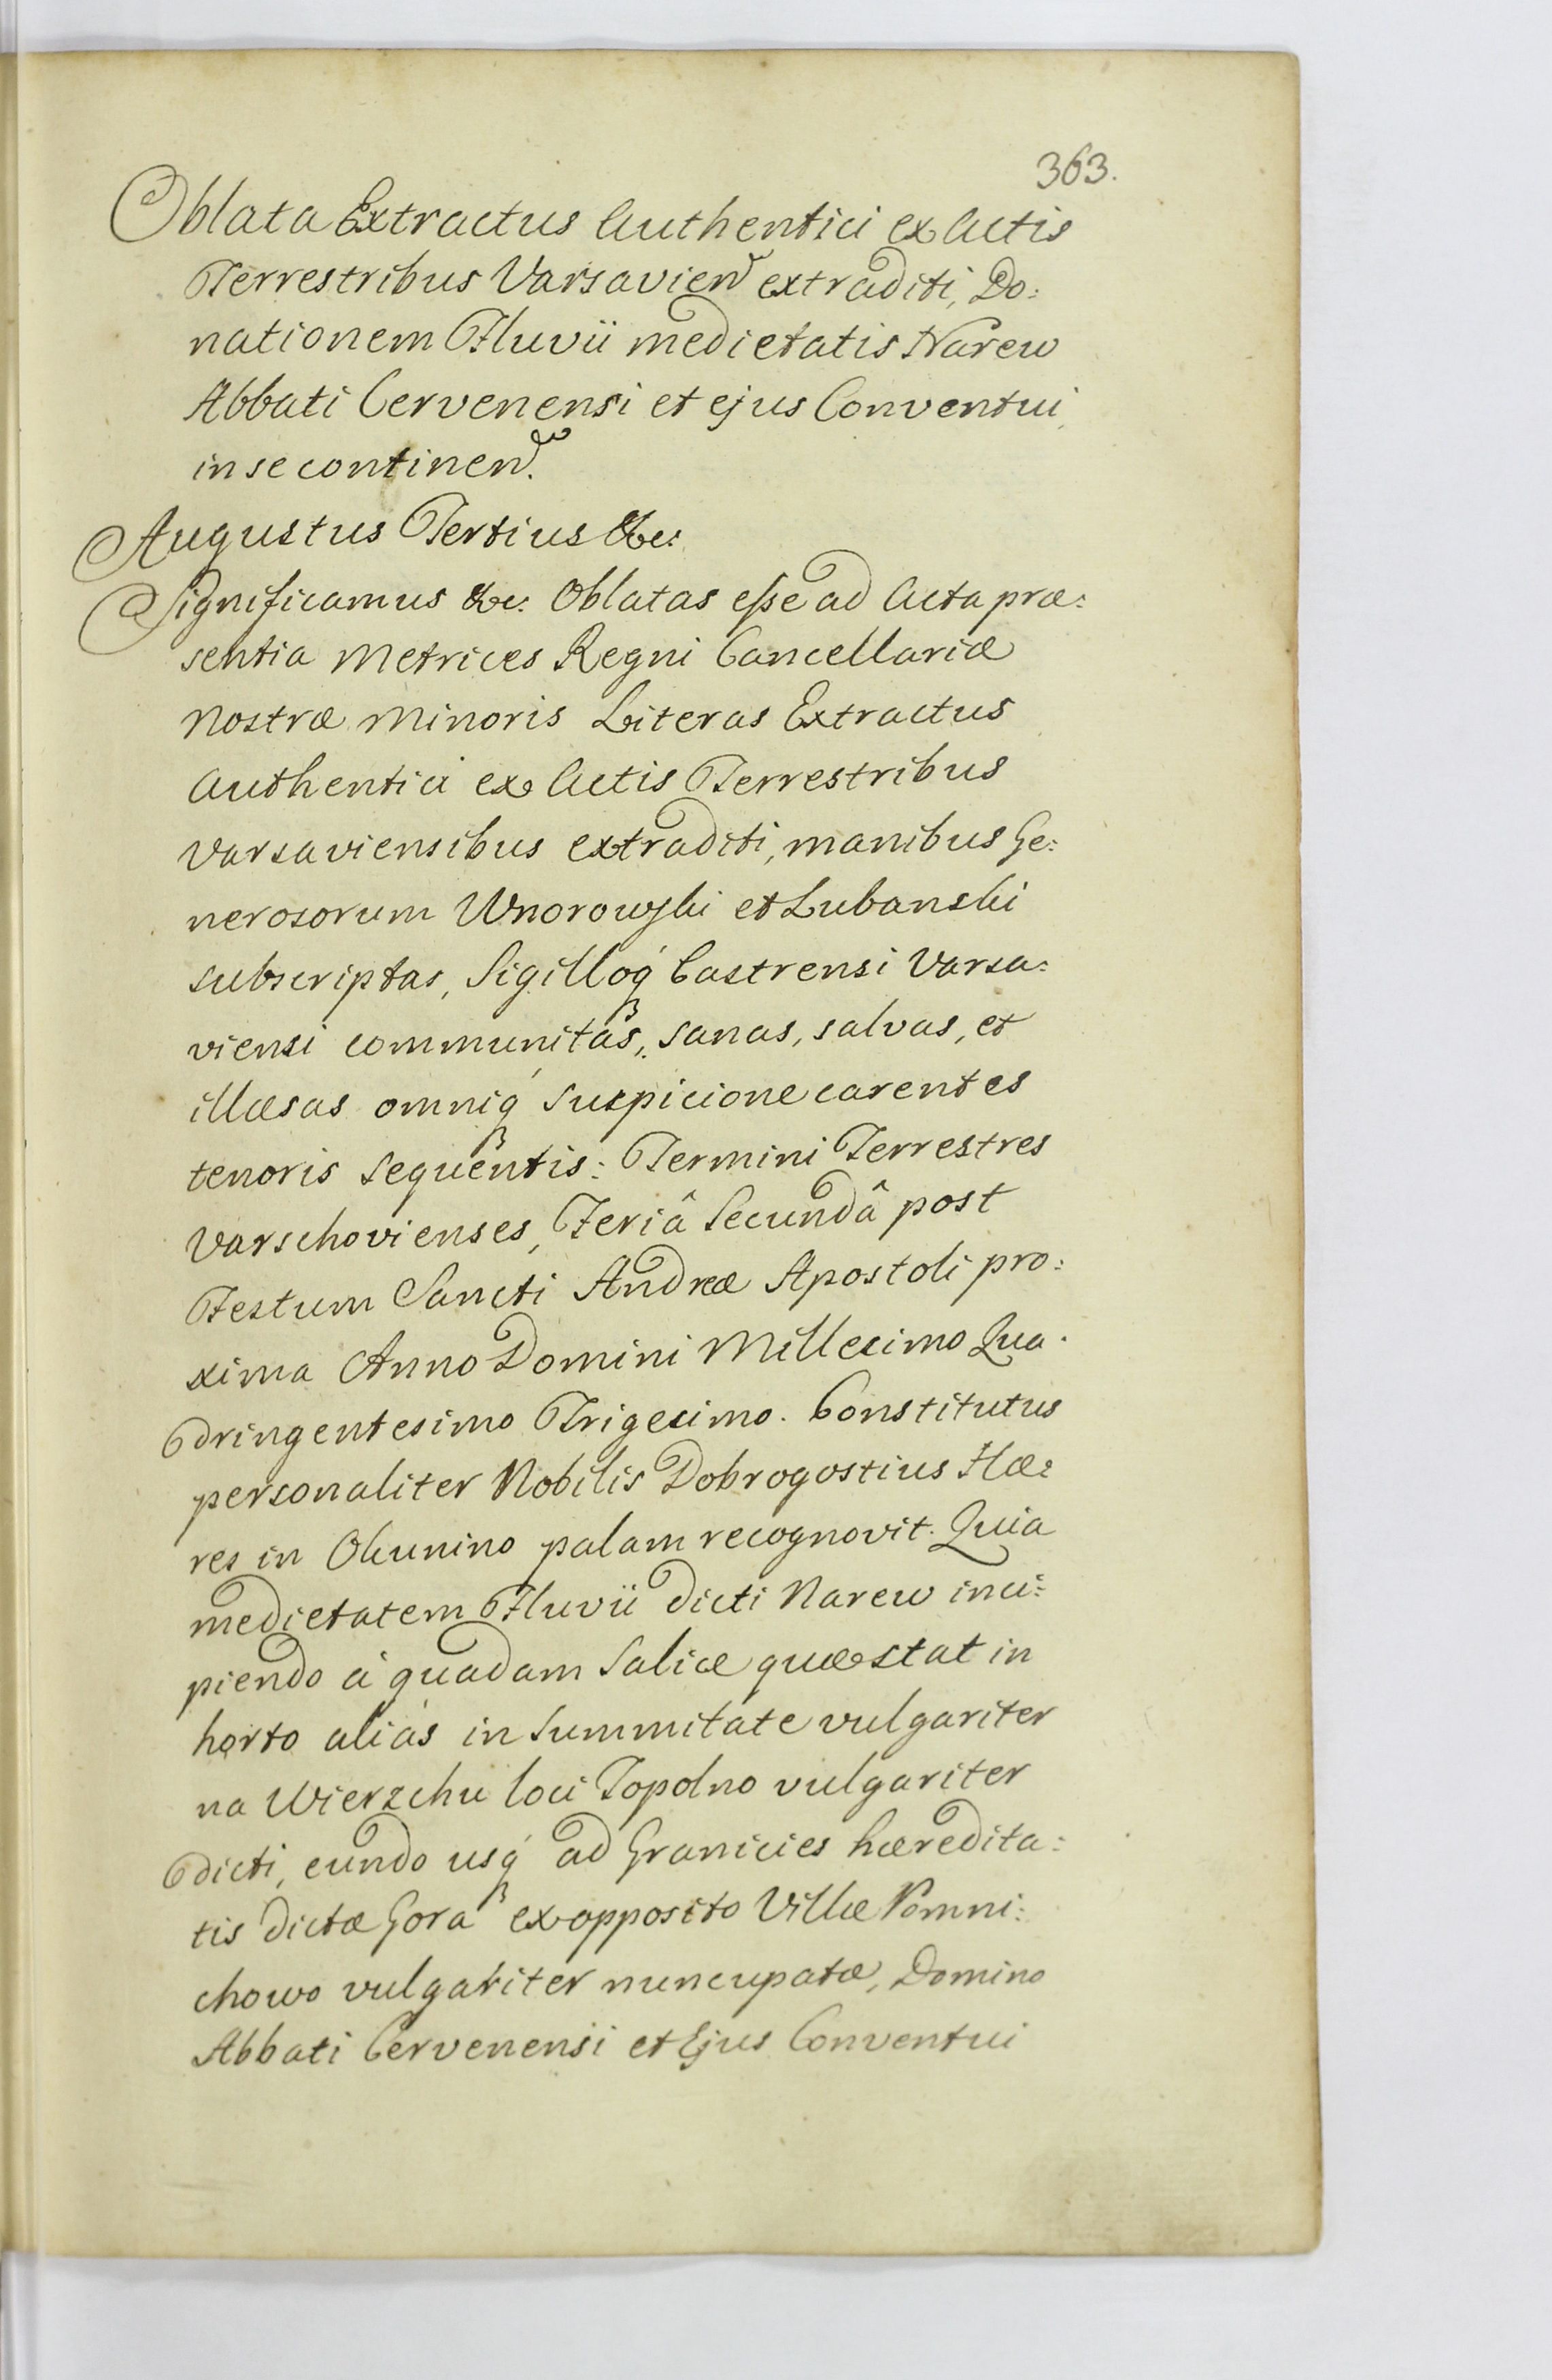 363.
Oblata Extractus Authentici ex Actis
Terrestribus Varsavien extraditi, Do:
nationem Fluvii medietatis Narew
Abbati Cervenensi et ejus Conventui,
in se continen.
Augustus Tertius &c:
Significamus &c: Oblatas esse ad Acta præ:
sentia Metrices Regni Cancellariæ
Nostræ Minoris Literas Extractus
Authentici ex Actis Terrestribus
Varsaviensibus extraditi, manibus Ge:
nerosorum Wnorowski et Lubanski
subscriptas, Sigilloq́ Castrensi Varsa:
viensi communitas, sanas, salvas, et
illæsas omniq́ suspicione carentes
tenoris sequentis: Termini Terrestres
Varschovienses, Feriâ Secundâ post
Festum Sancti Andreæ Apostoli pro:
xima Anno Domini Millesimo Qua:
dringentesimo Trigesimo. Constitutus
personaliter Nobilis Dobrogostius Hæ:
res in Okunino palam recognovit. Quia
medietatem Fluvii dicti Narew inci:
piendo à quadam Salice quæ stat in
horto aliàs in Summitate vulgariter
na Wierzchu loci Topolno vulgariter
dicti, eundo usq́ ad Granicies hæredita:
tis dictæ Gora ex opposito Villæ Pomni:
chowo vulgariter nuncupatæ, Domino
Abbati Cervenensi et Ejus Conventui